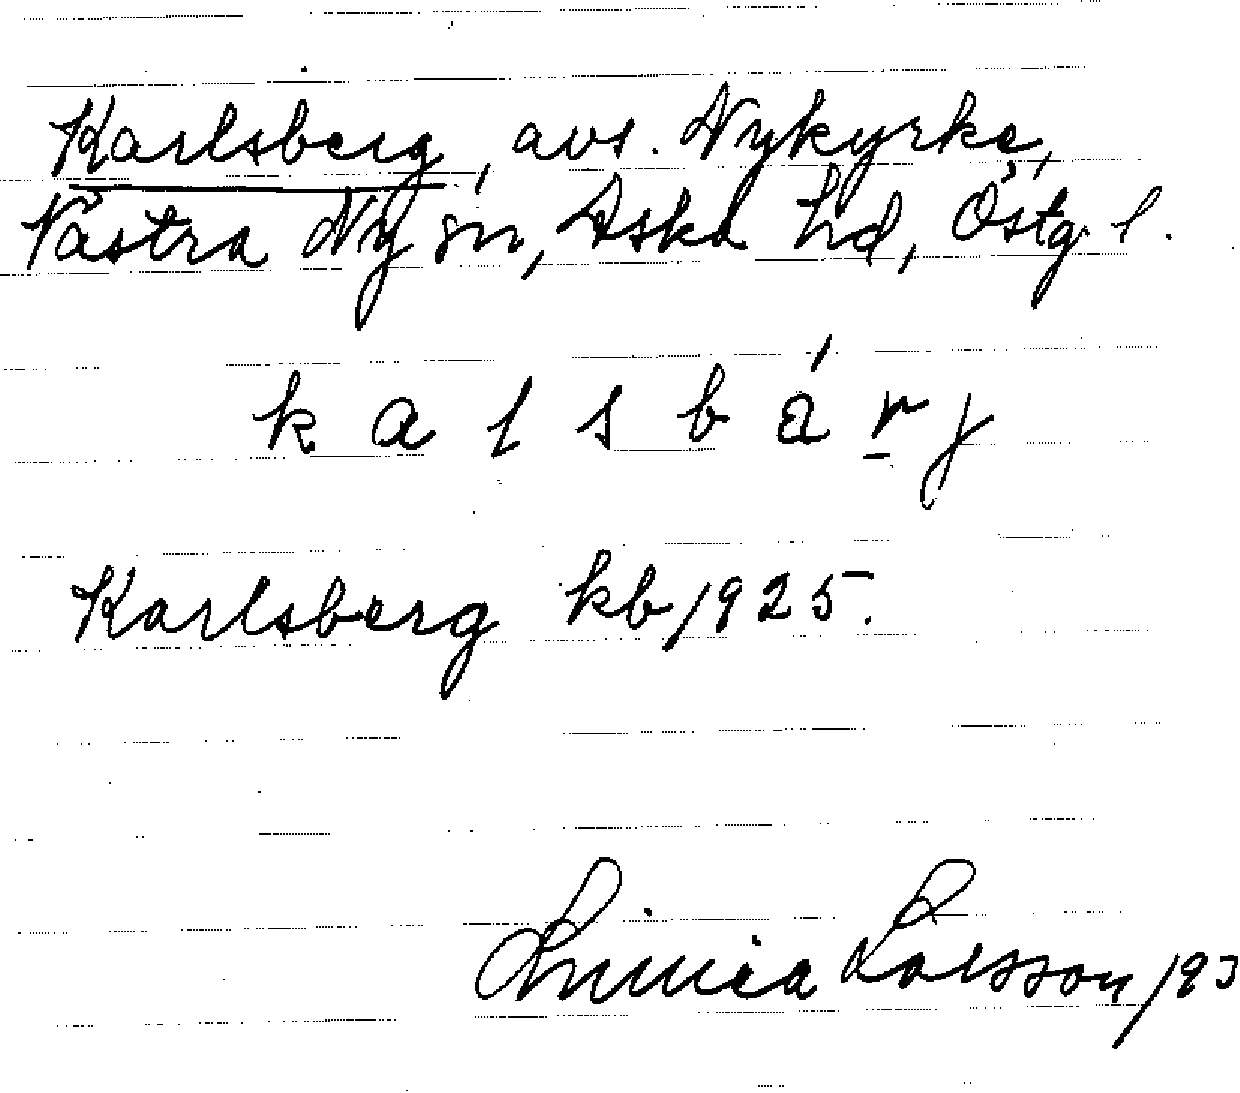 Karlsberg, avs. Nykyrke,
Västra Ny sn, Aska hd, Östg. l.
k a l s b á r y
Karlsberg kb/1925.
Linnéa Larsson /193